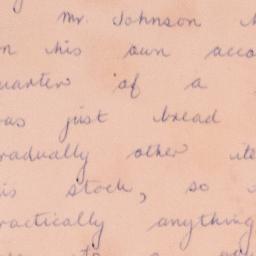 Mr. Johnson
on his own acco
uarter of a
was just bread
radually other ite
is stock, so
ractically anything